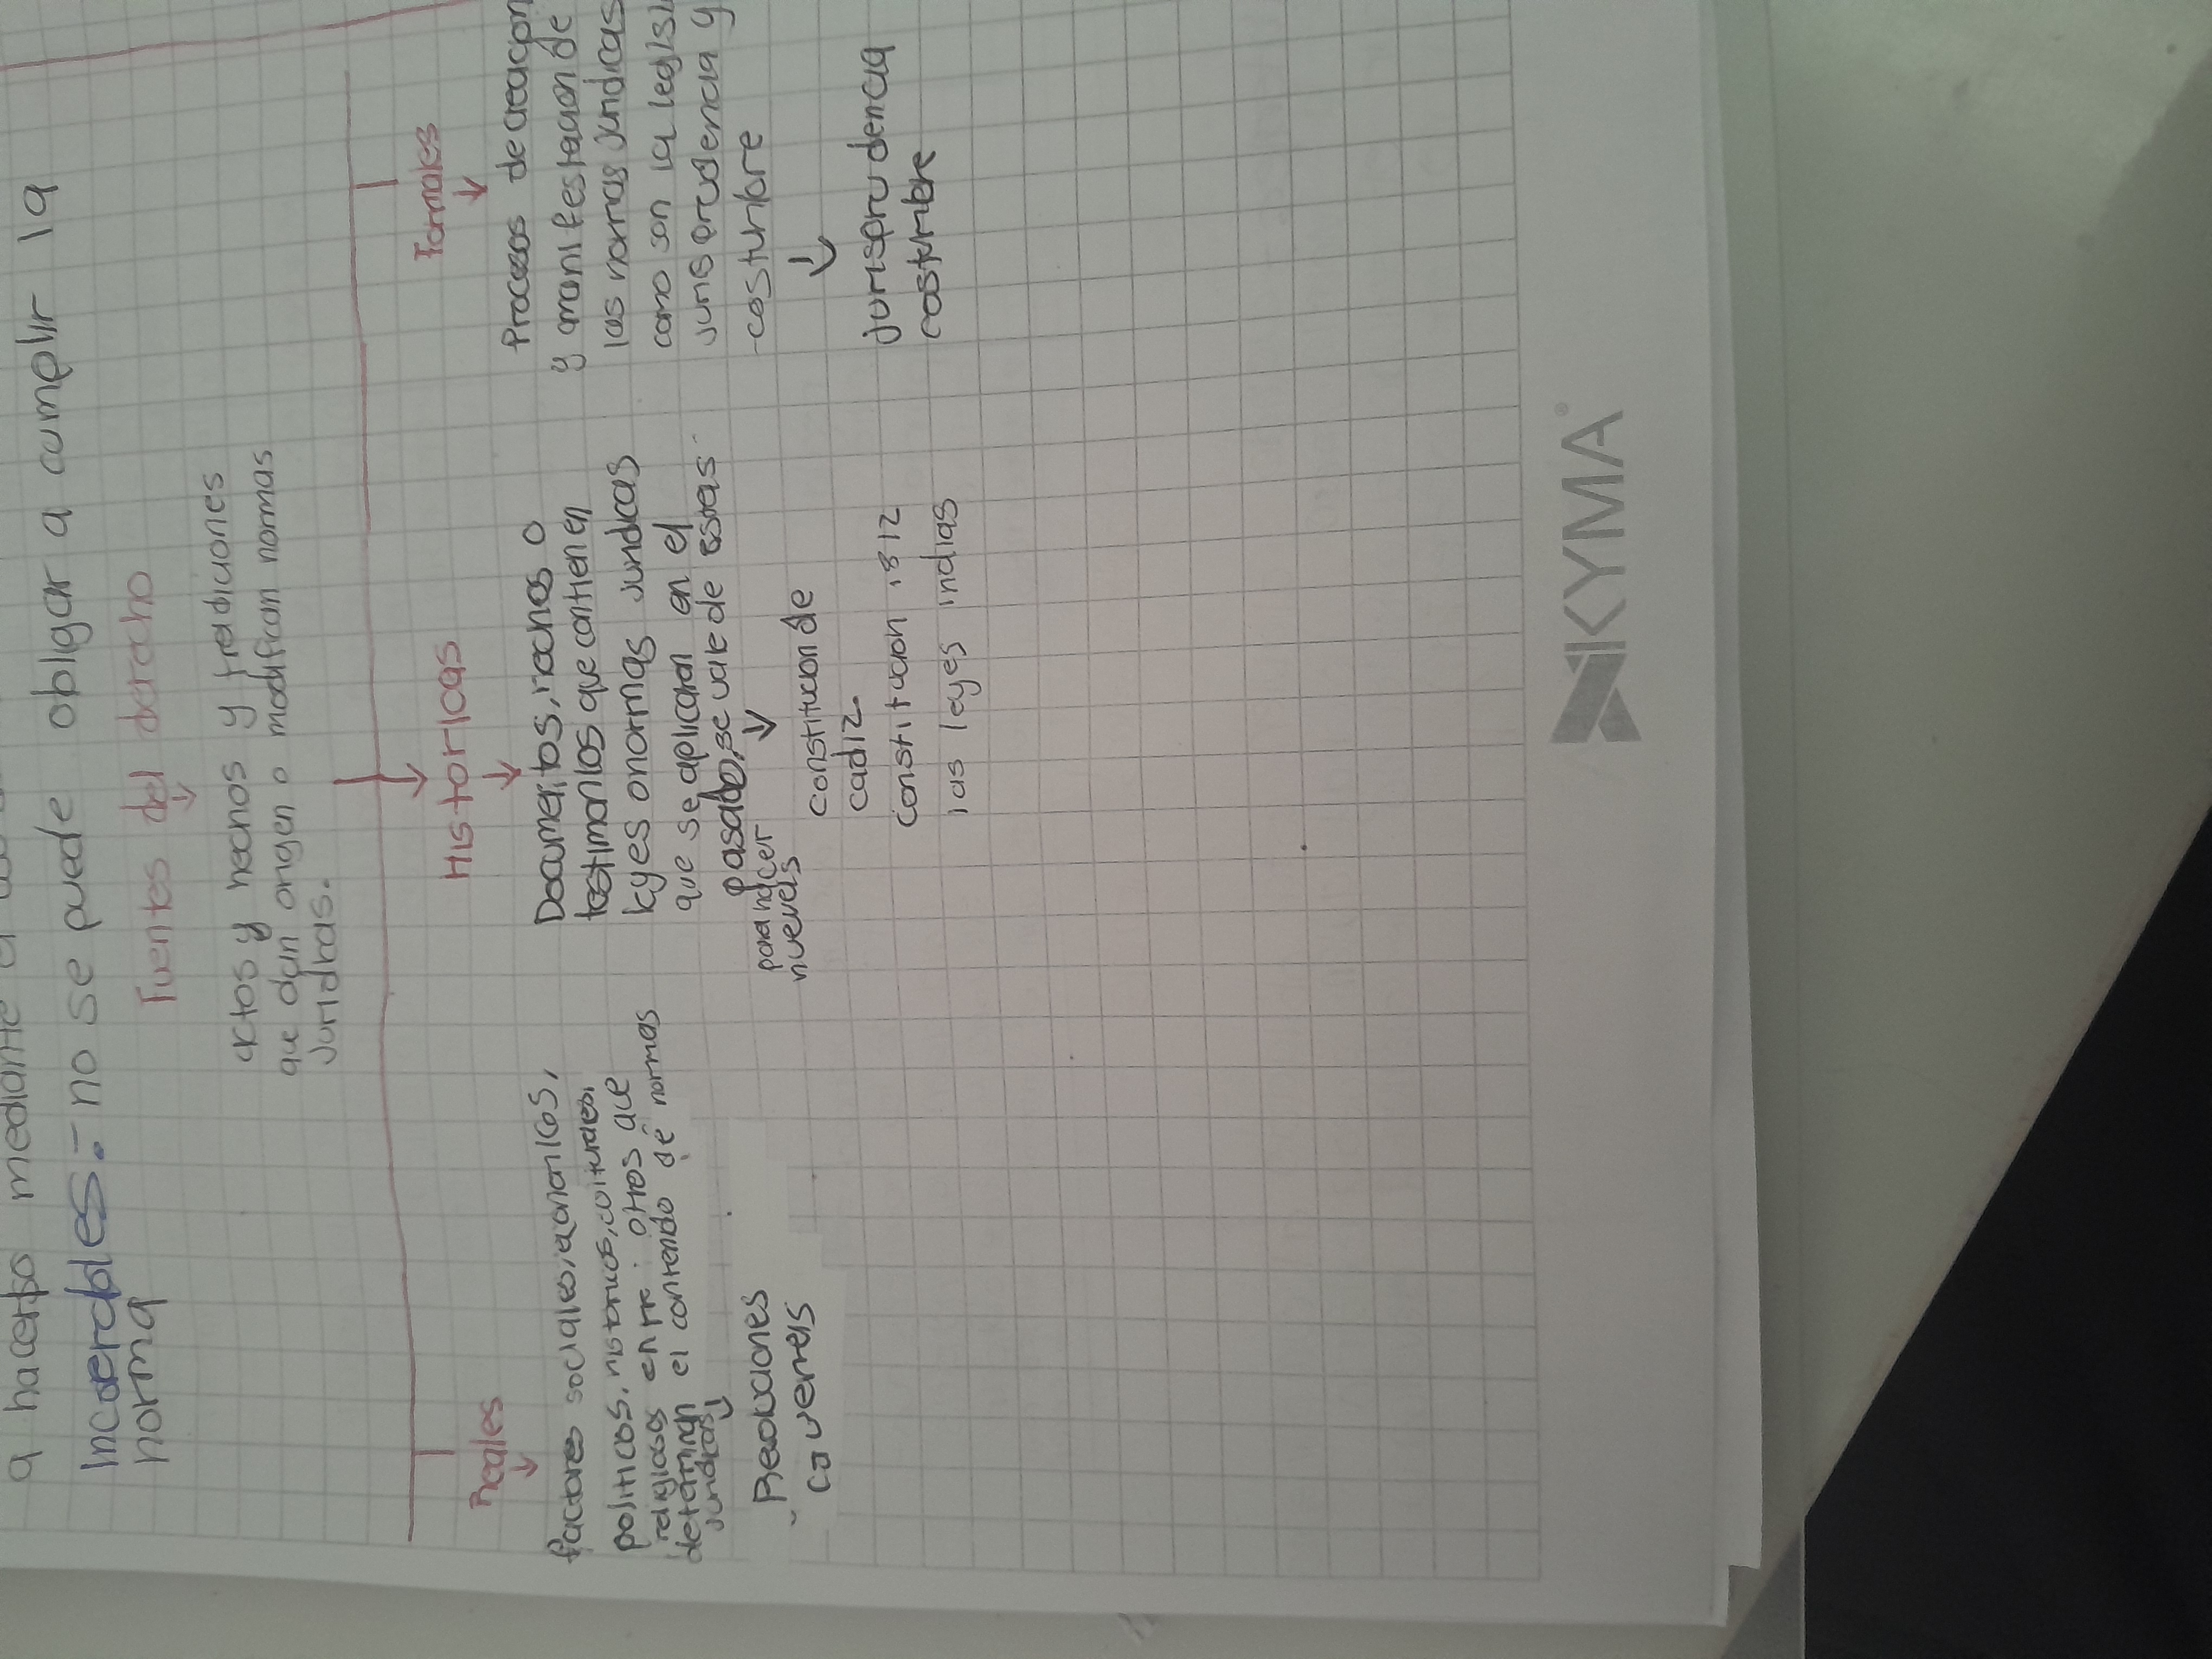 a hacerlo mediante
Incoercibles:- no se puede obligar a cumplir la
norma
Fuentes del derecho
actos y hechos y tradiciones
que dan origen o modifican normas
Juridicas.
Reales
factores sociales, economicos,
politicos, historicos, culturales,
religiosos entre otros que
determinan el contenido de normas
juridicas
- Revoluciones
Historicas
Documentos, hechos o
testimonios que contienen
leyes o normas juridicas
que se aplicaron en el
pasado, se vale de estas
para hacer
nuevas
constitucion de
cadiz
constitucion 1812
las leyes indias
Formales
Procesos de creacion
y manifestacion de
las normas juridicas
como son la legisl
jurisprudencia y
-costumbre
jurisprudencia
costumbre
KYMA®